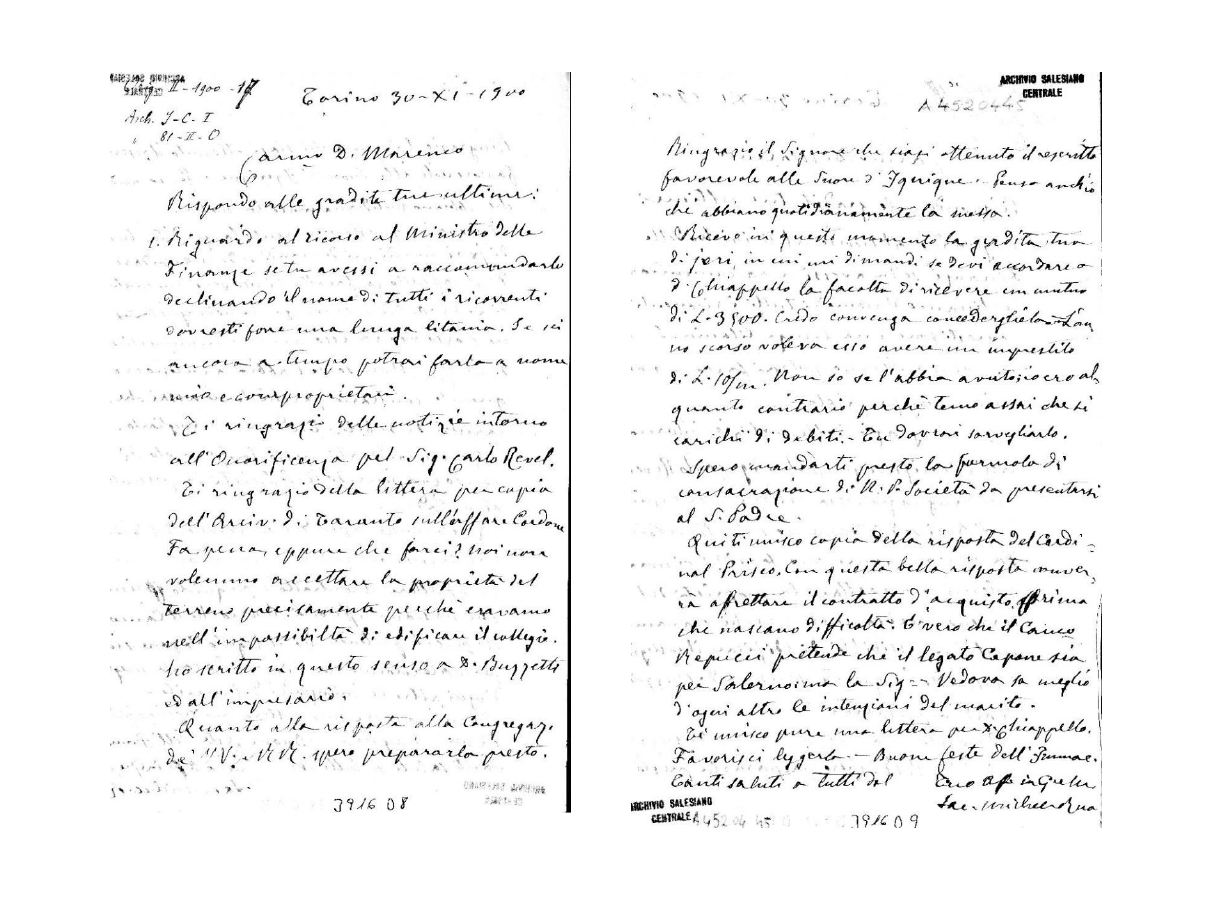 II-1900-17
Arch. J-C-I
81-II-O
Torino 30-XI-1900
Carmo D. Marenco
Rispondo alle gradite tue ultime:
1. Riguardo al ricorso al Ministro delle
Finanze se tu avessi a raccomandarlo
declinando il nome di tutti i ricorrenti
dovresti fare una lunga litania. Se sei
ancora a tempo potrai farla a nome
mio e comproprietari.
Ti ringrazio delle notizie intorno
all'Onorificenza pel Sig. Carlo Revel.
Ti ringrazio della lettera per copia
dell'Arciv. di Taranto sull'affare Cardone
Fa pena, eppure che farci? Noi non
volemmo accettare la proprietà del
terreno precisamente perchè eravamo
nell'impossibiltà di edificare il collegio.
ho scritto in questo senso a D. Buzzetti
ed all'impresario.
Quanto alla risposta alla Congregaz.
dei VV. e RR. spero prepararla presto.
391608
ARCHIVIO SALESIANO
CENTRALE
A4520445
Ringrazio il Signore che siasi ottenuto il rescritto
favorevole alle Suore d'Iquique - Penso anch'io
che abbiano quotidianamente la messa.
Ricevo in questo momento la gradita tua
di jeri, in cui mi dimandi se devi accordare a
d. Chiappello la facoltà di ricevere un mutuo
di L. 3500. Credo convenga concederglielo - L'an
no scorso voleva esso avere un imprestito
di L. 10/m. Non so se l'abbia avuto; io ero al
quanto contrario perchè temo assai che si
carichi di debiti. - Tu dovrai sorvegliarlo.
Spero mandarti presto la formola di
consacrazione di N. P. Società da presentarsi
al S. Padre.
Qui ti unisco copia della risposta del Cardi-
nal Prisco. Con questa bella risposta conver-
rà affrettare il contratto d'acquisto prima
che nascano difficoltà. È vero che il Canco
Repucci pretende che il legato Capone sia
per Salerno; ma la Sig.ra Vedova sa meglio
d'ogni altro le intenzioni del marito.
Ti unisco pure una lettera per D. Chiappello.
Favorisci leggerla. - Buone feste dell'Immac.
Tanti saluti a tutti dal Tuo aff in G. e M.
Sac. Michele Rua
ARCHIVIO SALESIANO
CENTRALE
391609